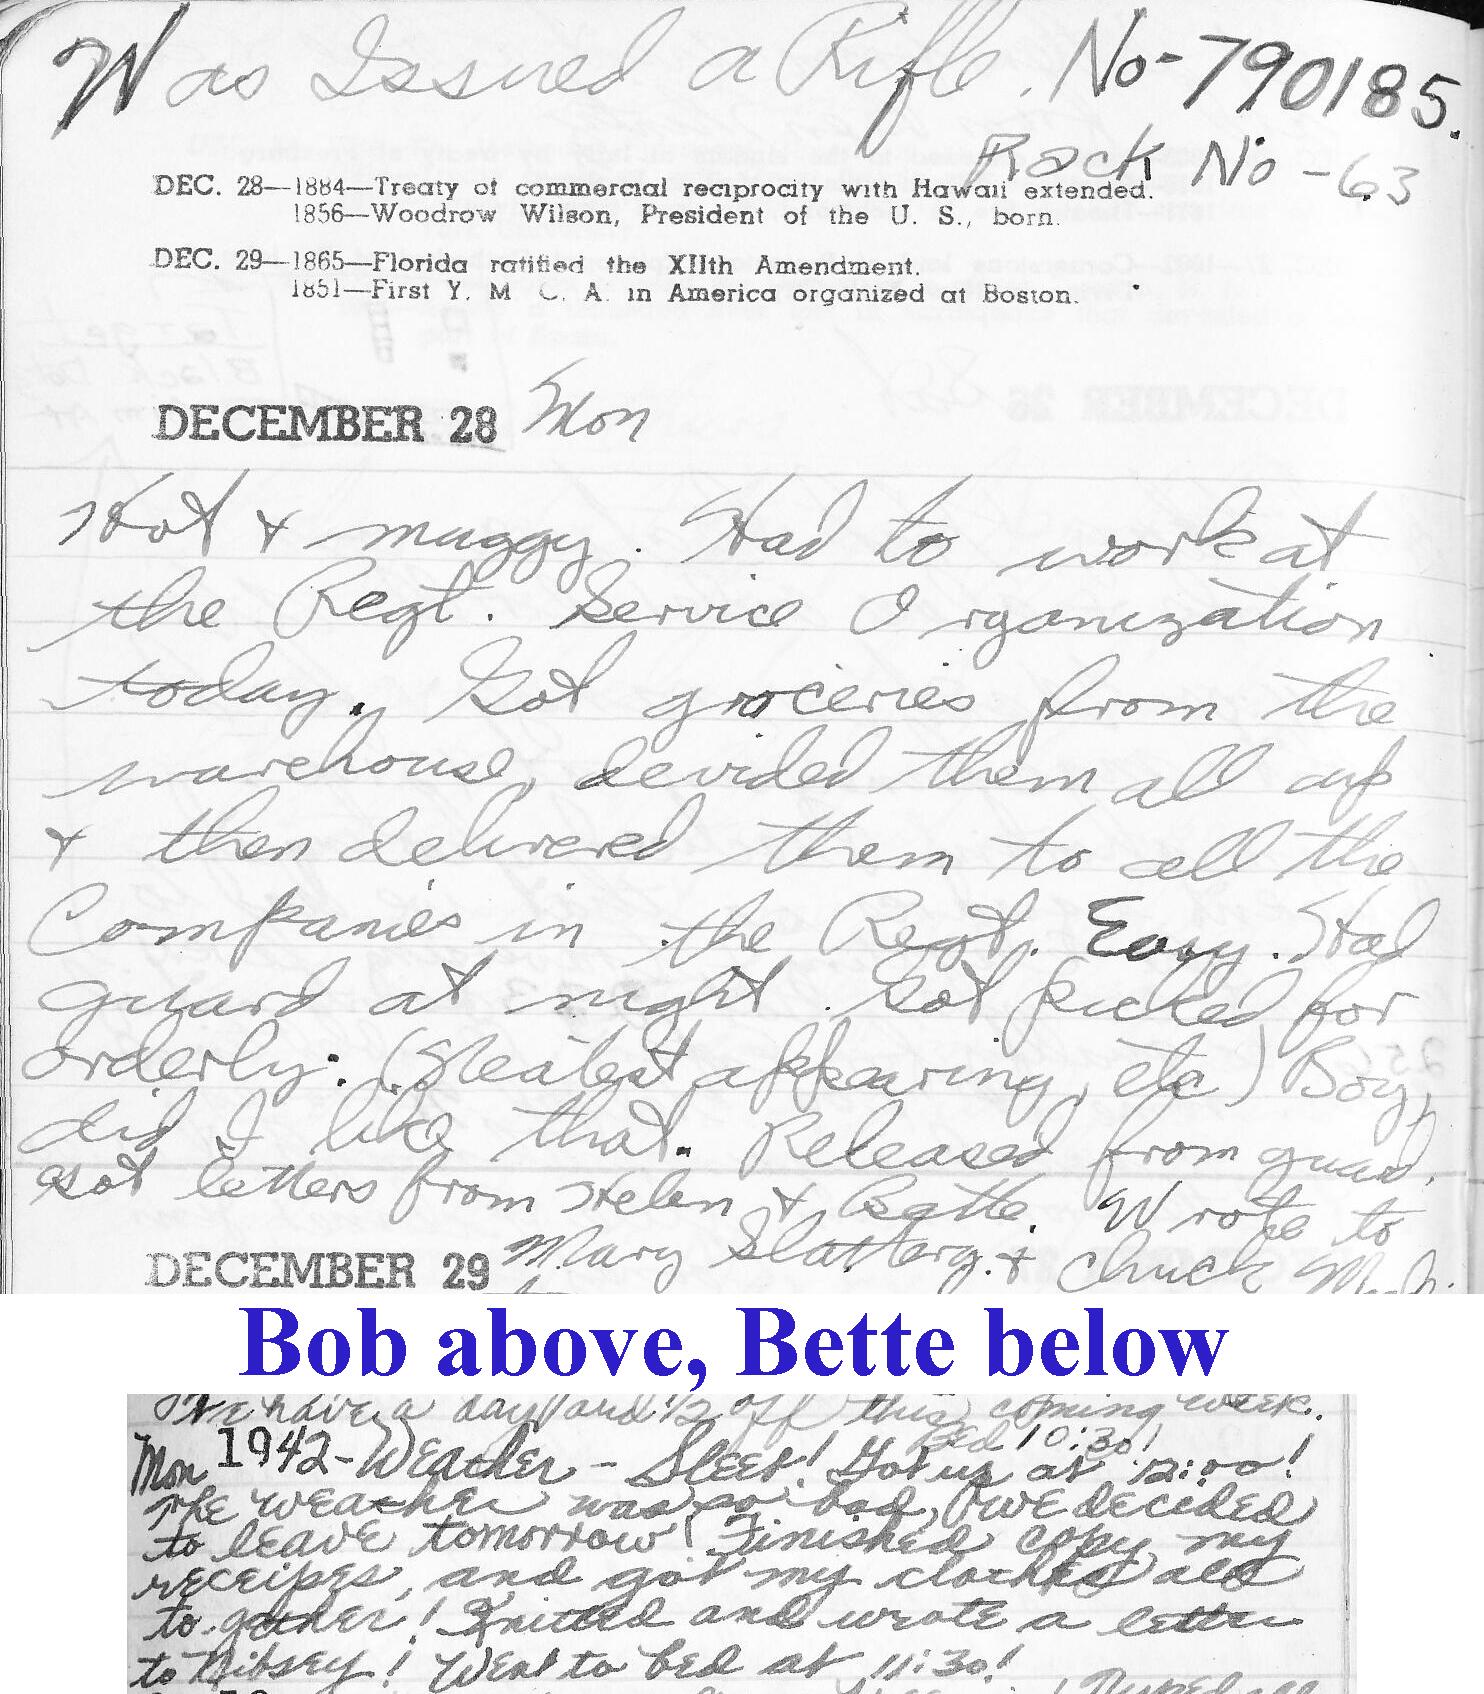 Was Issued a Rifle. No-790185.
Rack No-63
DEC. 28—1884—Treaty of commercial reciprocity with Hawaii extended.
1856—Woodrow Wilson, President of the U. S., born.
DEC. 29—1865—Florida ratified the XIIth Amendment.
1851—First Y. M. C. A. in America organized at Boston.
DECEMBER 28 Mon
Hot & muggy. Had to work at
the Regt. Service Organization
today. Got groceries from the
warehouse, devided them all up
& then delivered them to all the
Companies in the Regt. Easy. Had
guard at night. Got picked for
orderly. (Neatest appearing, etc) Boy,
did I like that. Released from guard.
Got letters from Helen & Bette. Wrote to
DECEMBER 29 Mary Slattery & Chuck
Bob above, Bette below
We have a day and 1/2 off this coming week.
Bed 10:30!
Mon 1942-Weather - Sleet! Got up at 12:00!
The weather was so bad, we decided
to leave tomorrow! Finished copy my
receipes, and got my clothes all
to gether! Knitted and wrote a letter
to Nibsey! Went to bed at 11:30!